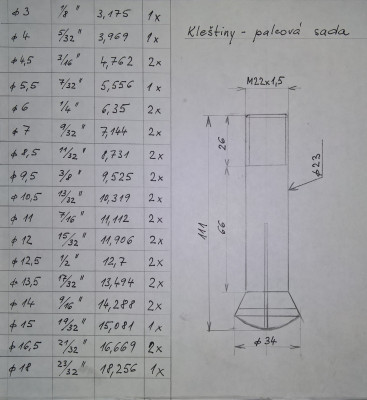 Kleštiny - palcová sada
φ 3 1/8" 3,175 1x
φ 4 5/32" 3,969 1x
φ 4,5 3/16" 4,762 2x
φ 5,5 7/32" 5,556 1x
φ 6 1/4" 6,35 2x
φ 7 9/32" 7,144 2x
φ 8,5 11/32" 8,731 2x
φ 9,5 3/8" 9,525 2x
φ 10,5 13/32" 10,319 2x
φ 11 7/16" 11,112 2x
φ 12 15/32" 11,906 2x
φ 12,5 1/2" 12,7 2x
φ 13,5 17/32" 13,494 2x
φ 14 9/16" 14,288 2x
φ 15 19/32" 15,081 1x
φ 16,5 21/32" 16,669 2x
φ 18 23/32" 18,256 1x
M22x1,5
26
φ23
111
66
φ 34